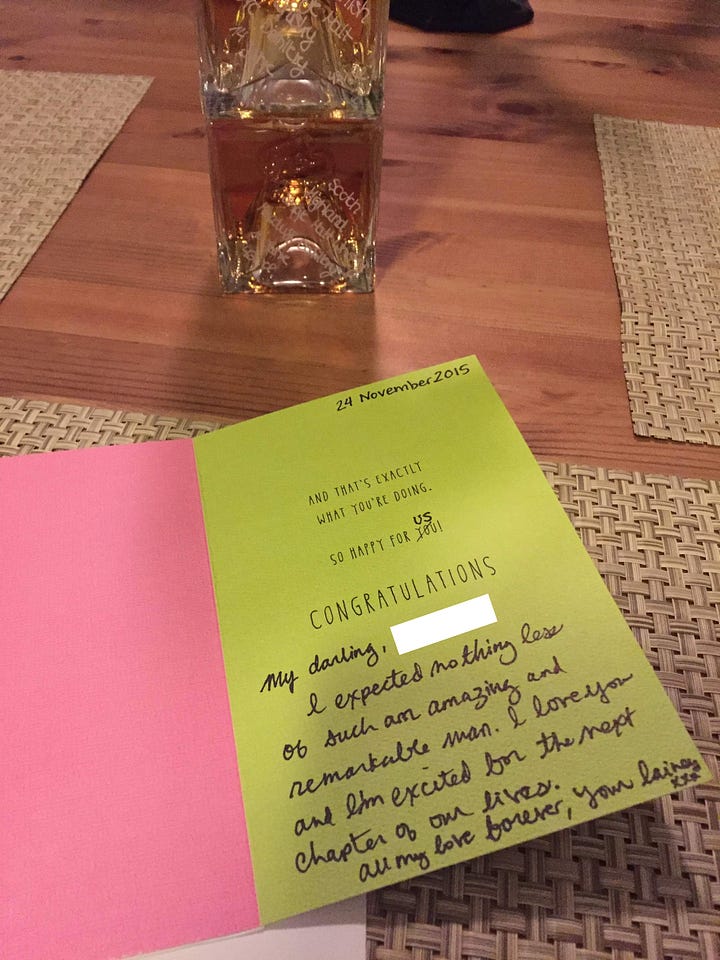 Scotch
24 November 2015
AND THAT'S EXACTLY
WHAT YOU'RE DOING.
US
SO HAPPY FOR YOU!
CONGRATULATIONS
My darling,
I expected nothing less
of such an amazing and
remarkable man. I love you
and I'm excited for the next
chapter of our lives.
all my love forever, your lainey
xxx